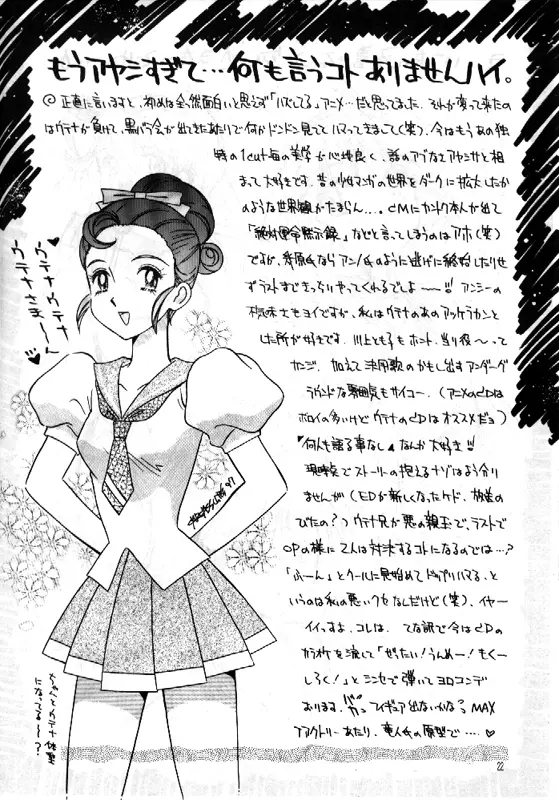 もうアヤシすぎて…何も言うコトありませんハイ。
◎正直に言いますと、初めは全然面白いと思えず「ハズしてる」アニメ…だと思ってました。それが変って来たの
はウテナが負けて、黒バラ会が出てきたあたりで何かドンドン見ててハマってきまして(笑)、今はもうあの独
特の1cut毎の美学が心地良く、話のアブなさアヤシサと相
まって大好きです。昔の少女マンガの世界をダークに拡大したか
のような世界観がたまらん…。CMにカントク本人が出て
「絶対運命黙示録」などと言ってしまうのはアホ(笑)
ですが、幾原氏ならアン／氏のように逃げに終始したりせ
ずラストまできっちりやってくれるでしょ〜〜!! アンシーの
不気味さもヨイですが、私はウテナのあのアッケラカンと
した所が好きです。川上とも子もホント、当り役〜って
カンジ。加えて決闘歌のかもし出すアンダーグ
ラウンドな雰囲気もサイコー。(アニメのCDは
ボロイの多いけどウテナのCDはオススメだョ)
"何人も語る事なし"なんか大好き!!
現時点でストーリーの抱えるナゾはよう分り
ませんが(EDが新しくなったケド、放送の
びたの？)ウテナ兄が悪の親玉で、ラストで
OPの様に2人は対決するコトになるのでは…?
「ふーん」とクールに見始めてドップリハマる、と
いうのは私の悪いクセなんだけど(笑)、イヤー
イイっすよ、コレは。 てな訳で今はCDの
カラオケを流して「ぜったい!うんめー!もくー
しろく!」とシンセで弾いてヨロコンデ
おります。バカ。フィギュア出ないかな? MAX
ファクトリーあたり、竜人氏の原型で……♥
ウテナウテナ
ウテナさま〜〜ん
'97
ちがうとウテナ体型
になってる〜？
22